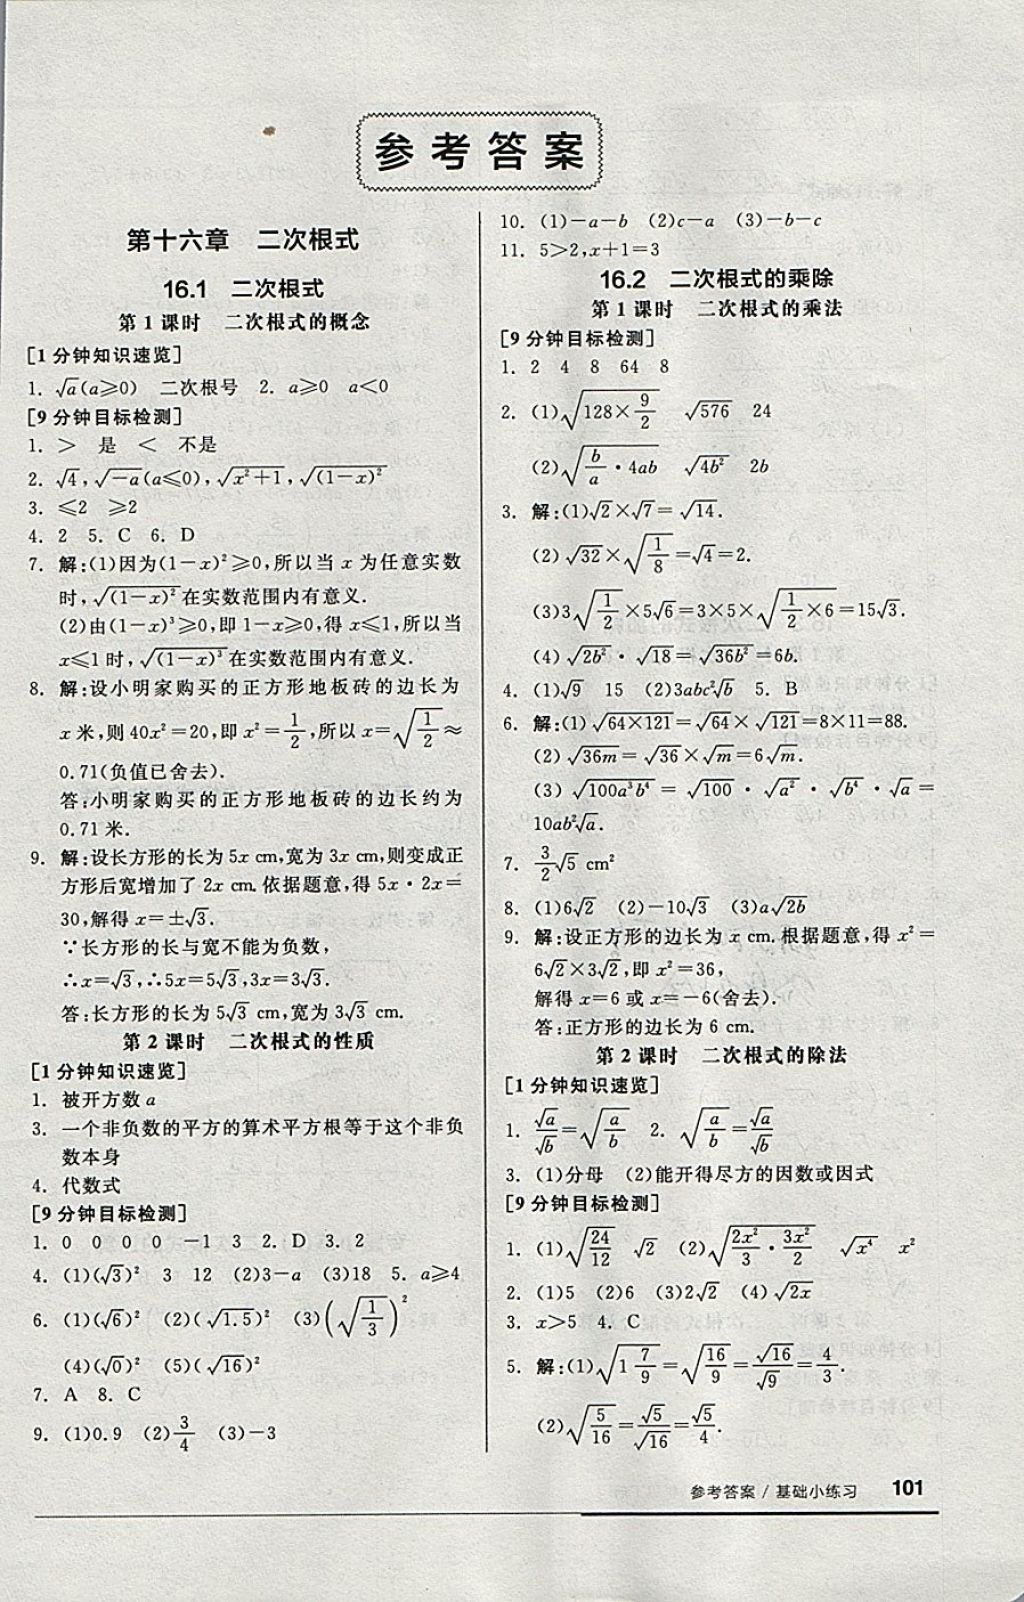 参考答案
第十六章 二次根式
16.1 二次根式
第1课时 二次根式的概念
[1分钟知识速览]
1. √a(a≥0) 二次根号 2. a≥0 a<0
[9分钟目标检测]
1. > 是 < 不是
2. √4,√(-a)(a≤0),√(x²+1),√((1-x)²)
3. ≤2 ≥2
4. 2 5. C 6. D
7. 解:(1)因为(1-x)²≥0,所以当 x 为任意实数
时,√((1-x)²)在实数范围内有意义.
(2)由(1-x)³≥0,即1-x≥0,得x≤1,所以当
x≤1时,√((1-x)³)在实数范围内有意义.
8. 解:设小明家购买的正方形地板砖的边长为
x米,则40x²=20,即x²=1/2,所以x=√(1/2)≈
0.71(负值已舍去).
答:小明家购买的正方形地板砖的边长约为
0.71米.
9. 解:设长方形的长为5x cm,宽为3x cm,则变成正
方形后宽增加了2x cm.依据题意,得5x·2x=
30,解得x=±√3.
∵长方形的长与宽不能为负数,
∴x=√3,∴5x=5√3,3x=3√3.
答:长方形的长为5√3 cm,宽为3√3 cm.
第2课时 二次根式的性质
[1分钟知识速览]
1. 被开方数a
3. 一个非负数的平方的算术平方根等于这个非负
数本身
4. 代数式
[9分钟目标检测]
1. 0 0 0 0 -1 3 2. D 3. 2
4. (1)(√3)² 3 12 (2)3-a (3)18 5. a≥4
6. (1)(√6)² (2)(√1.5)² (3)(√(1/3))²
(4)(√0)² (5)(√16)²
7. A 8. C
9. (1)0.9 (2)3/4 (3)-3
10. (1)-a-b (2)c-a (3)-b-c
11. 5>2,x+1=3
16.2 二次根式的乘除
第1课时 二次根式的乘法
[9分钟目标检测]
1. 2 4 8 64 8
2. (1)√(128×9/2) √576 24
(2)√(b/a·4ab) √(4b²) 2b
3. 解:(1)√2×√7=√14.
(2)√32×√(1/8)=√4=2.
(3)3√(1/2)×5√6=3×5×√(1/2×6)=15√3.
(4)√(2b²)·√18=√(36b²)=6b.
4. (1)√9 15 (2)3abc²√b 5. B
6. 解:(1)√(64×121)=√64×√121=8×11=88.
(2)√(36m)=√36×√m=6√m.
(3)√(100a³b⁴)=√100·√(a²)·√(b⁴)·√a=
10ab²√a.
7. 3/2√5 cm²
8. (1)6√2 (2)-10√3 (3)a√(2b)
9. 解:设正方形的边长为x cm.根据题意,得x²=
6√2×3√2,即x²=36,
解得x=6或x=-6(舍去).
答:正方形的边长为6 cm.
第2课时 二次根式的除法
[1分钟知识速览]
1. √a/√b=√(a/b) 2. √(a/b)=√a/√b
3. (1)分母 (2)能开得尽方的因数或因式
[9分钟目标检测]
1. (1)√(24/12) √2 (2)√(2x²/3·3x²/2) √(x⁴) x²
2. (1)5 (2)6 (3)2√2 (4)√(2x)
3. x>5 4. C
5. 解:(1)√(1 7/9)=√(16/9)=√16/√9=4/3.
(2)√(5/16)=√5/√16=√5/4.
参考答案 / 基础小练习 101